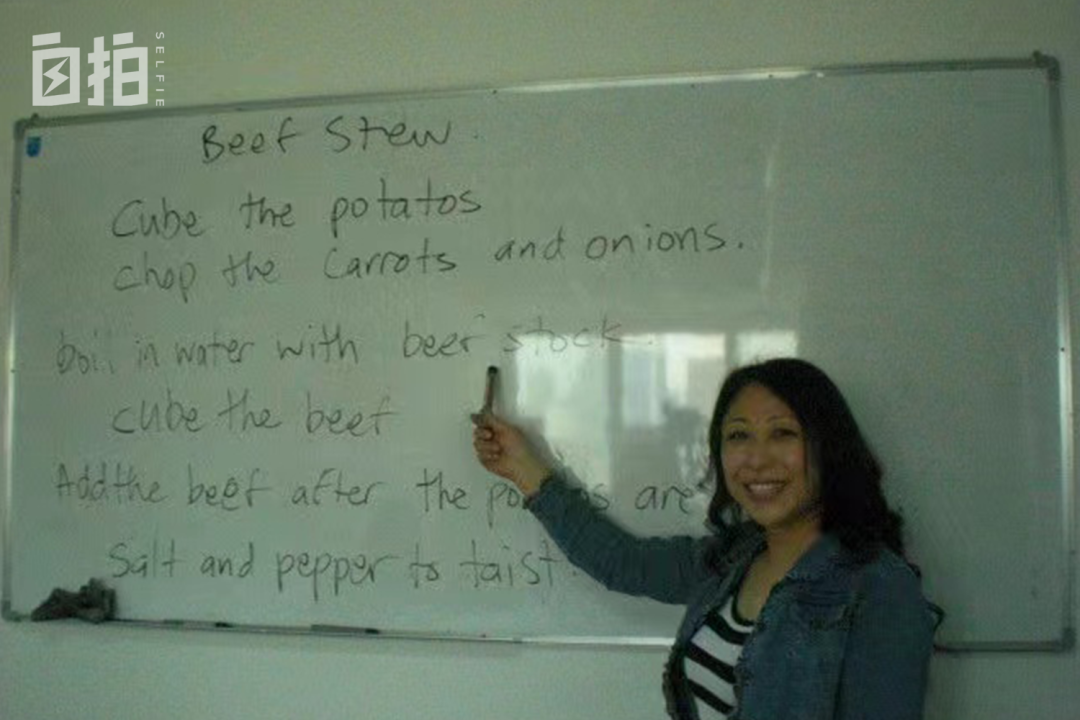 自拍
SELFIE
Beef Stew.
Cube the potatos
chop the Carrots and onions.
boil in water with beef stock.
cube the beef
Add the beef after the are
Salt and pepper to taist.